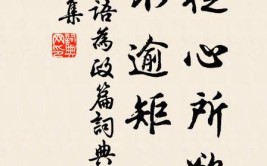 從心所欲
不逾矩
語為政篇詞典
集